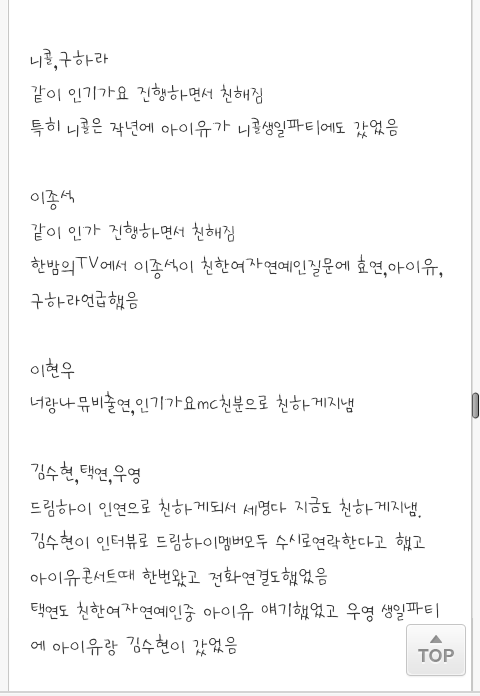 니콜,구하라
같이 인기가요 진행하면서 친해짐
특히 니콜은 작년에 아이유가 니콜생일파티에도 갔었음
이종석
같이 인가 진행하면서 친해짐
한밤의TV에서 이종석이 친한여자연예인질문에 효연,아이유,
구하라언급했음
이현우
너랑나뮤비출연,인기가요mc친분으로 친하게지냄
김수현,택연,우영
드림하이 인연으로 친하게되서 세명다 지금도 친하게지냄.
김수현이 인터뷰로 드림하이멤버모두 수시로연락한다고 했고
아이유콘서트때 한번왔고 전화연결도했었음
택연도 친한여자연예인중 아이유 얘기했었고 우영 생일파티
에 아이유랑 김수현이 갔었음
TOP